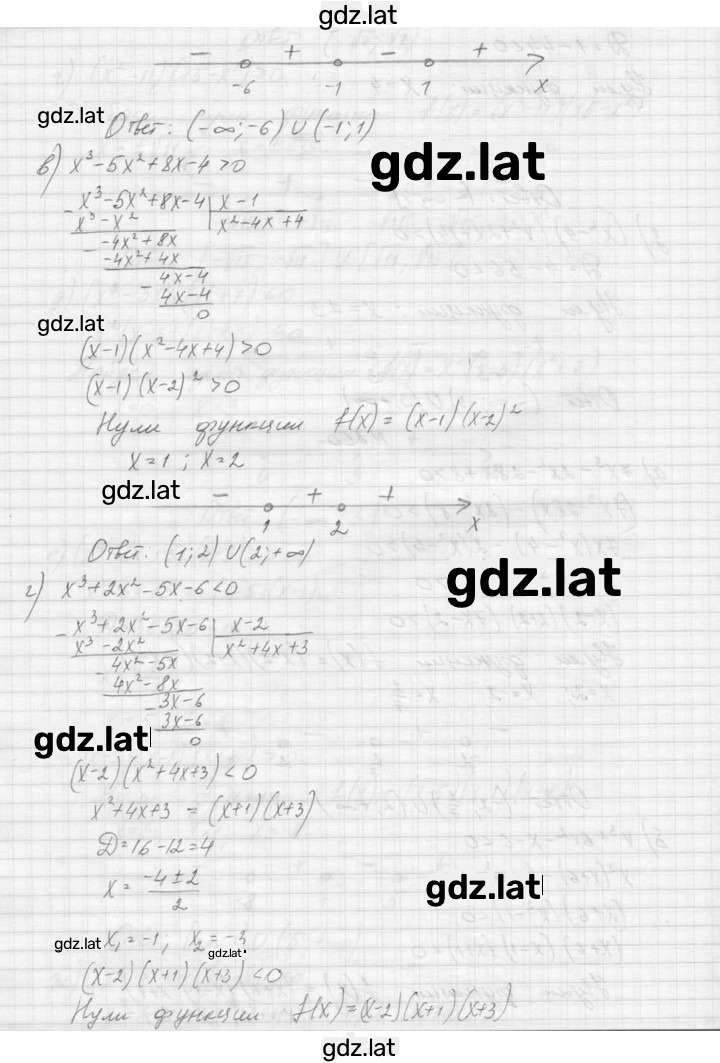 gdz.lat
− + − +
-6 -1 1 x
gdz.lat
Ответ: (-∞;-6)∪(-1;1)
gdz.lat
в) x³-5x²+8x-4>0
x³-5x²+8x-4 | x-1
x³-x² | x²-4x+4
-4x²+8x
-4x²+4x
4x-4
4x-4
0
gdz.lat
(x-1)(x²-4x+4)>0
(x-1)(x-2)²>0
Нули функции f(x)=(x-1)(x-2)²
x=1; x=2
gdz.lat
− + +
1 2 x
Ответ: (1;2)∪(2;+∞)
gdz.lat
г) x³+2x²-5x-6<0
x³+2x²-5x-6 | x-2
x³-2x² | x²+4x+3
4x²-5x
4x²-8x
3x-6
3x-6
0
gdz.lat
(x-2)(x²+4x+3)<0
x²+4x+3 = (x+1)(x+3)
D=16-12=4
x = -4±2
2
gdz.lat
gdz.lat x₁=-1; x₂=-3
gdz.lat
(x-2)(x+1)(x+3)<0
Нули функции f(x)=(x-2)(x+1)(x+3)
gdz.lat